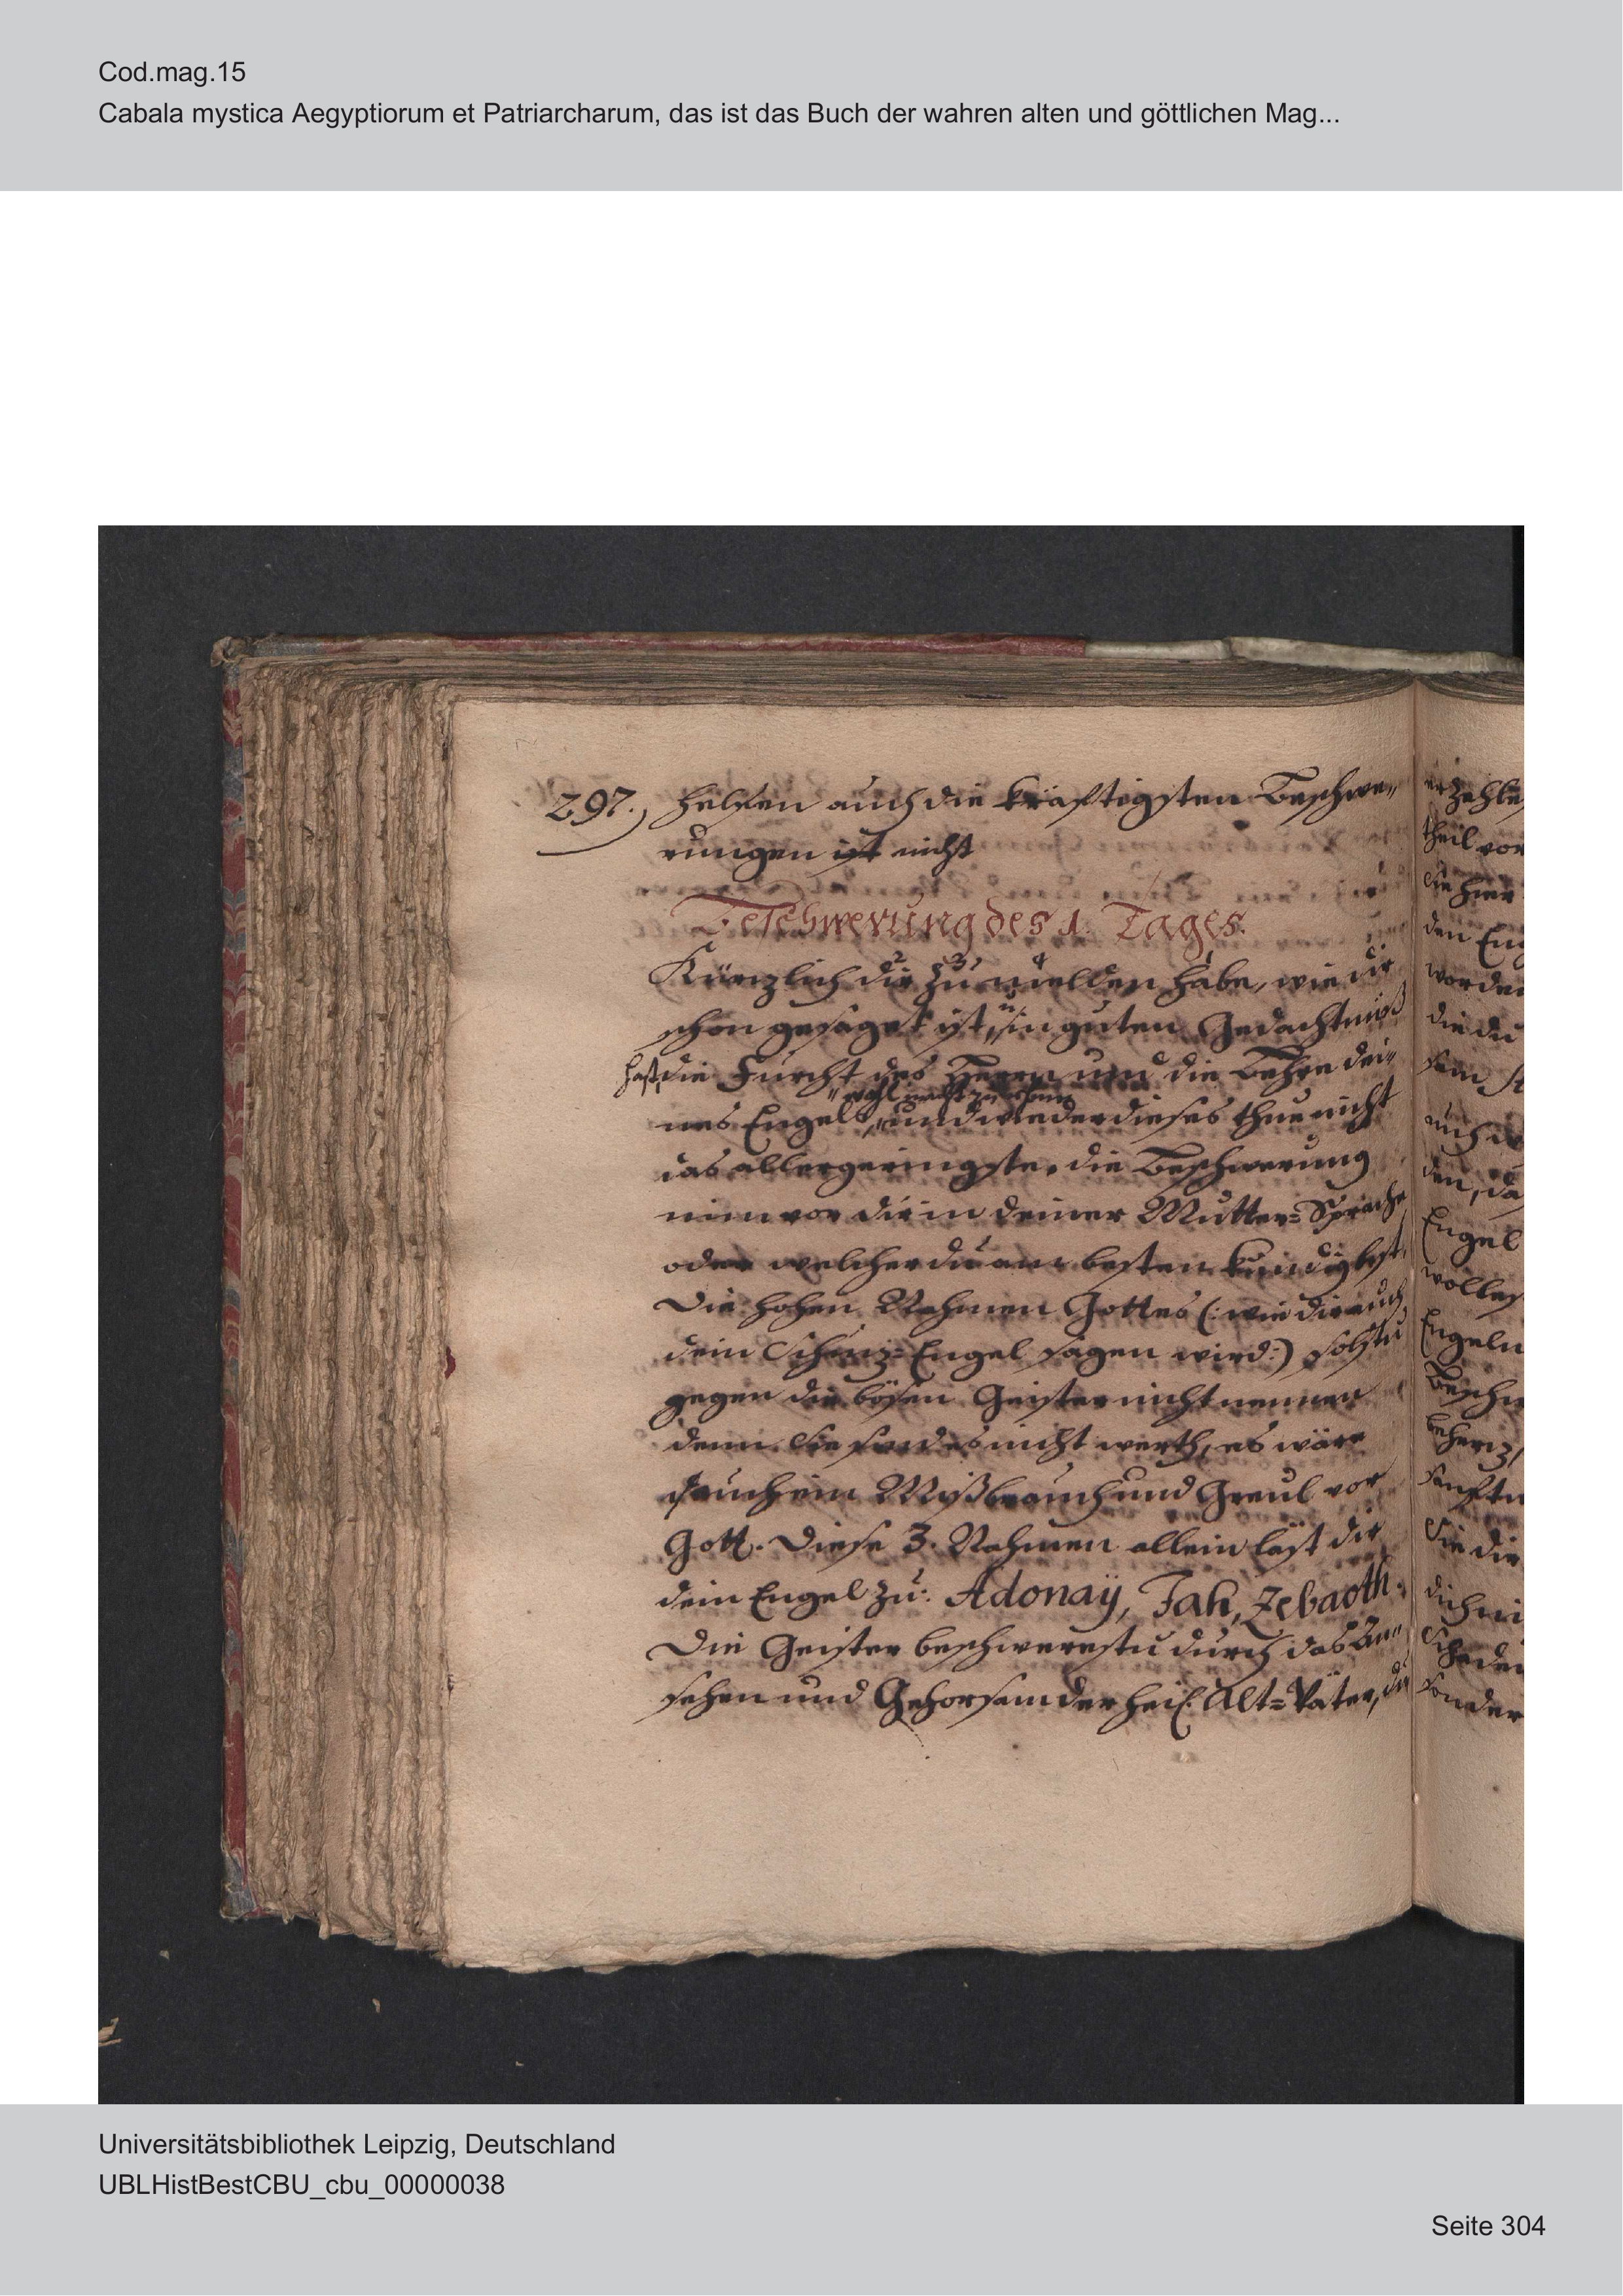 Cod.mag.15
Cabala mystica Aegyptiorum et Patriarcharum, das ist das Buch der wahren alten und göttlichen Mag...
297.) helffen auch die kräfftigsten Beschwe„
rungen ist nicht
Beschwerung des 1. Tages.
Kürzlich dir zu melden habe, wie dir
schon gesaget ist, in guten Gedächtniß
hast die Furcht des Herrn und die Lehre dei„
nes Engels, und wieder dieses thue nicht
das allergeringste, die Beschwerung
nim vor dir in deiner Mutter=Sprache
oder welcher du am besten kündig bist,
Die hohen Nahmen Gottes (: wie dir auch
dein Schuz=Engel sagen wird:) solstu
gegen die bösen Geister nicht nennen
denn sie sind es nicht werth, es wäre
auch ein Mißbrauch und Greul vor
Gott. Diese 3. Nahmen allein läst dir
dein Engel zu: Adonaÿ, Jah, Zebaoth.
Die Geister beschwerestu durch das An„
sehen und Gehorsam der heil. Alt=Väter, die
erzehle
theil vor
die hier
den Eng
worden
die du
auch
den, da
Engel
wolles
Engeln
Besch
sanftm
Sie die
dich
Schaden
sonder
Universitätsbibliothek Leipzig, Deutschland
UBLHistBestCBU_cbu_00000038
Seite 304